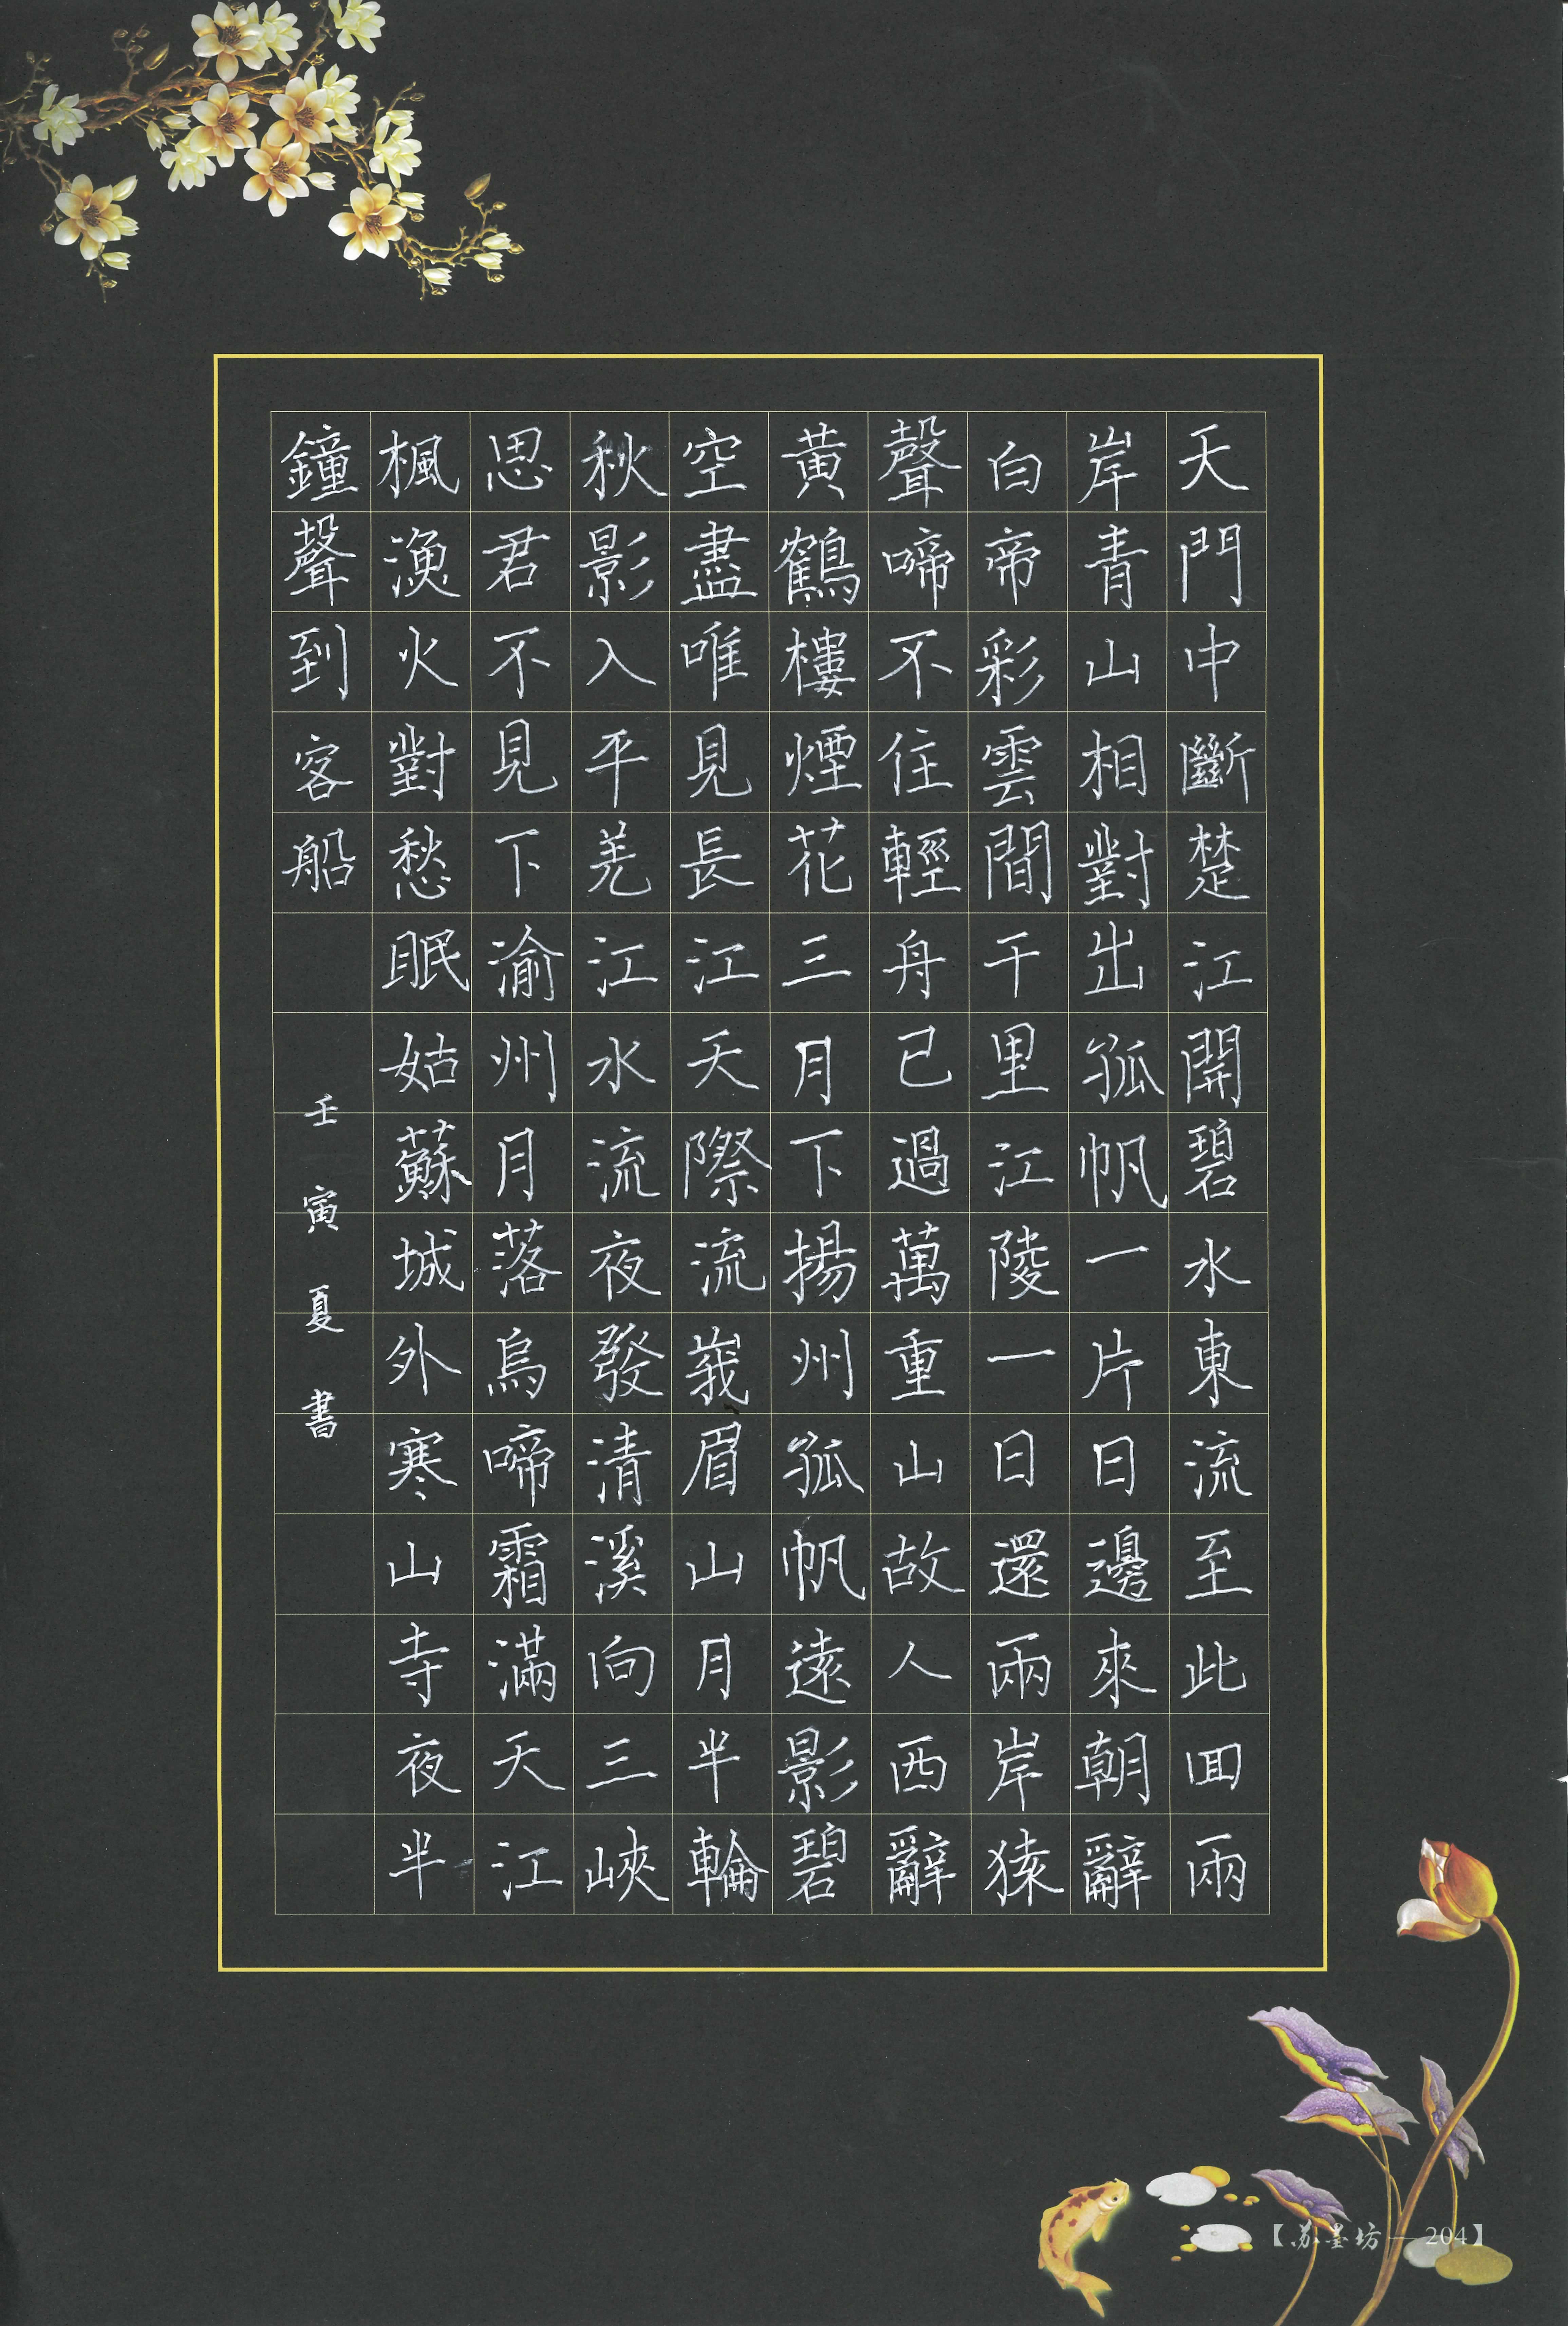 天門中斷楚江開碧水東流至此回兩
岸青山相對出孤帆一片日邊來朝辭
白帝彩雲間千里江陵一日還兩岸猿
聲啼不住輕舟已過萬重山故人西辭
黃鶴樓煙花三月下揚州孤帆遠影碧
空盡唯見長江天際流峩眉山月半輪
秋影入平羌江水流夜發清溪向三峽
思君不見下渝州月落烏啼霜滿天江
楓漁火對愁眠姑蘇城外寒山寺夜半
鐘聲到客船
壬寅夏書
【苏墨坊—204】